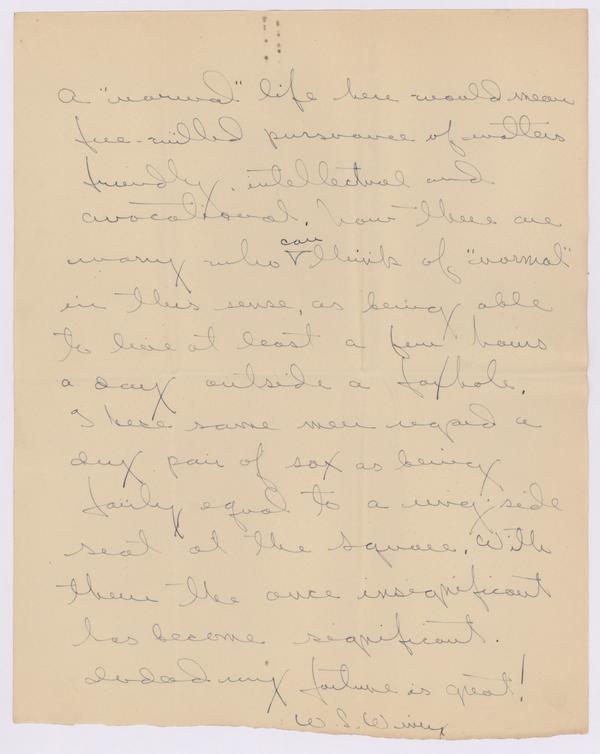 A "normal" life here would mean
free-willed pursuance of matters
friendly, intellectual and
avocational. Now there are
many who can think of "normal"
in this sense, as being able
to live at least a few hours
a day outside a foxhole.
These same men regard a
dry pair of sox as being
fairly equal to a ring-side
seat at the Square. With
them the once insignificant
has become significant.
Indeed my fortune is great!
W. S.